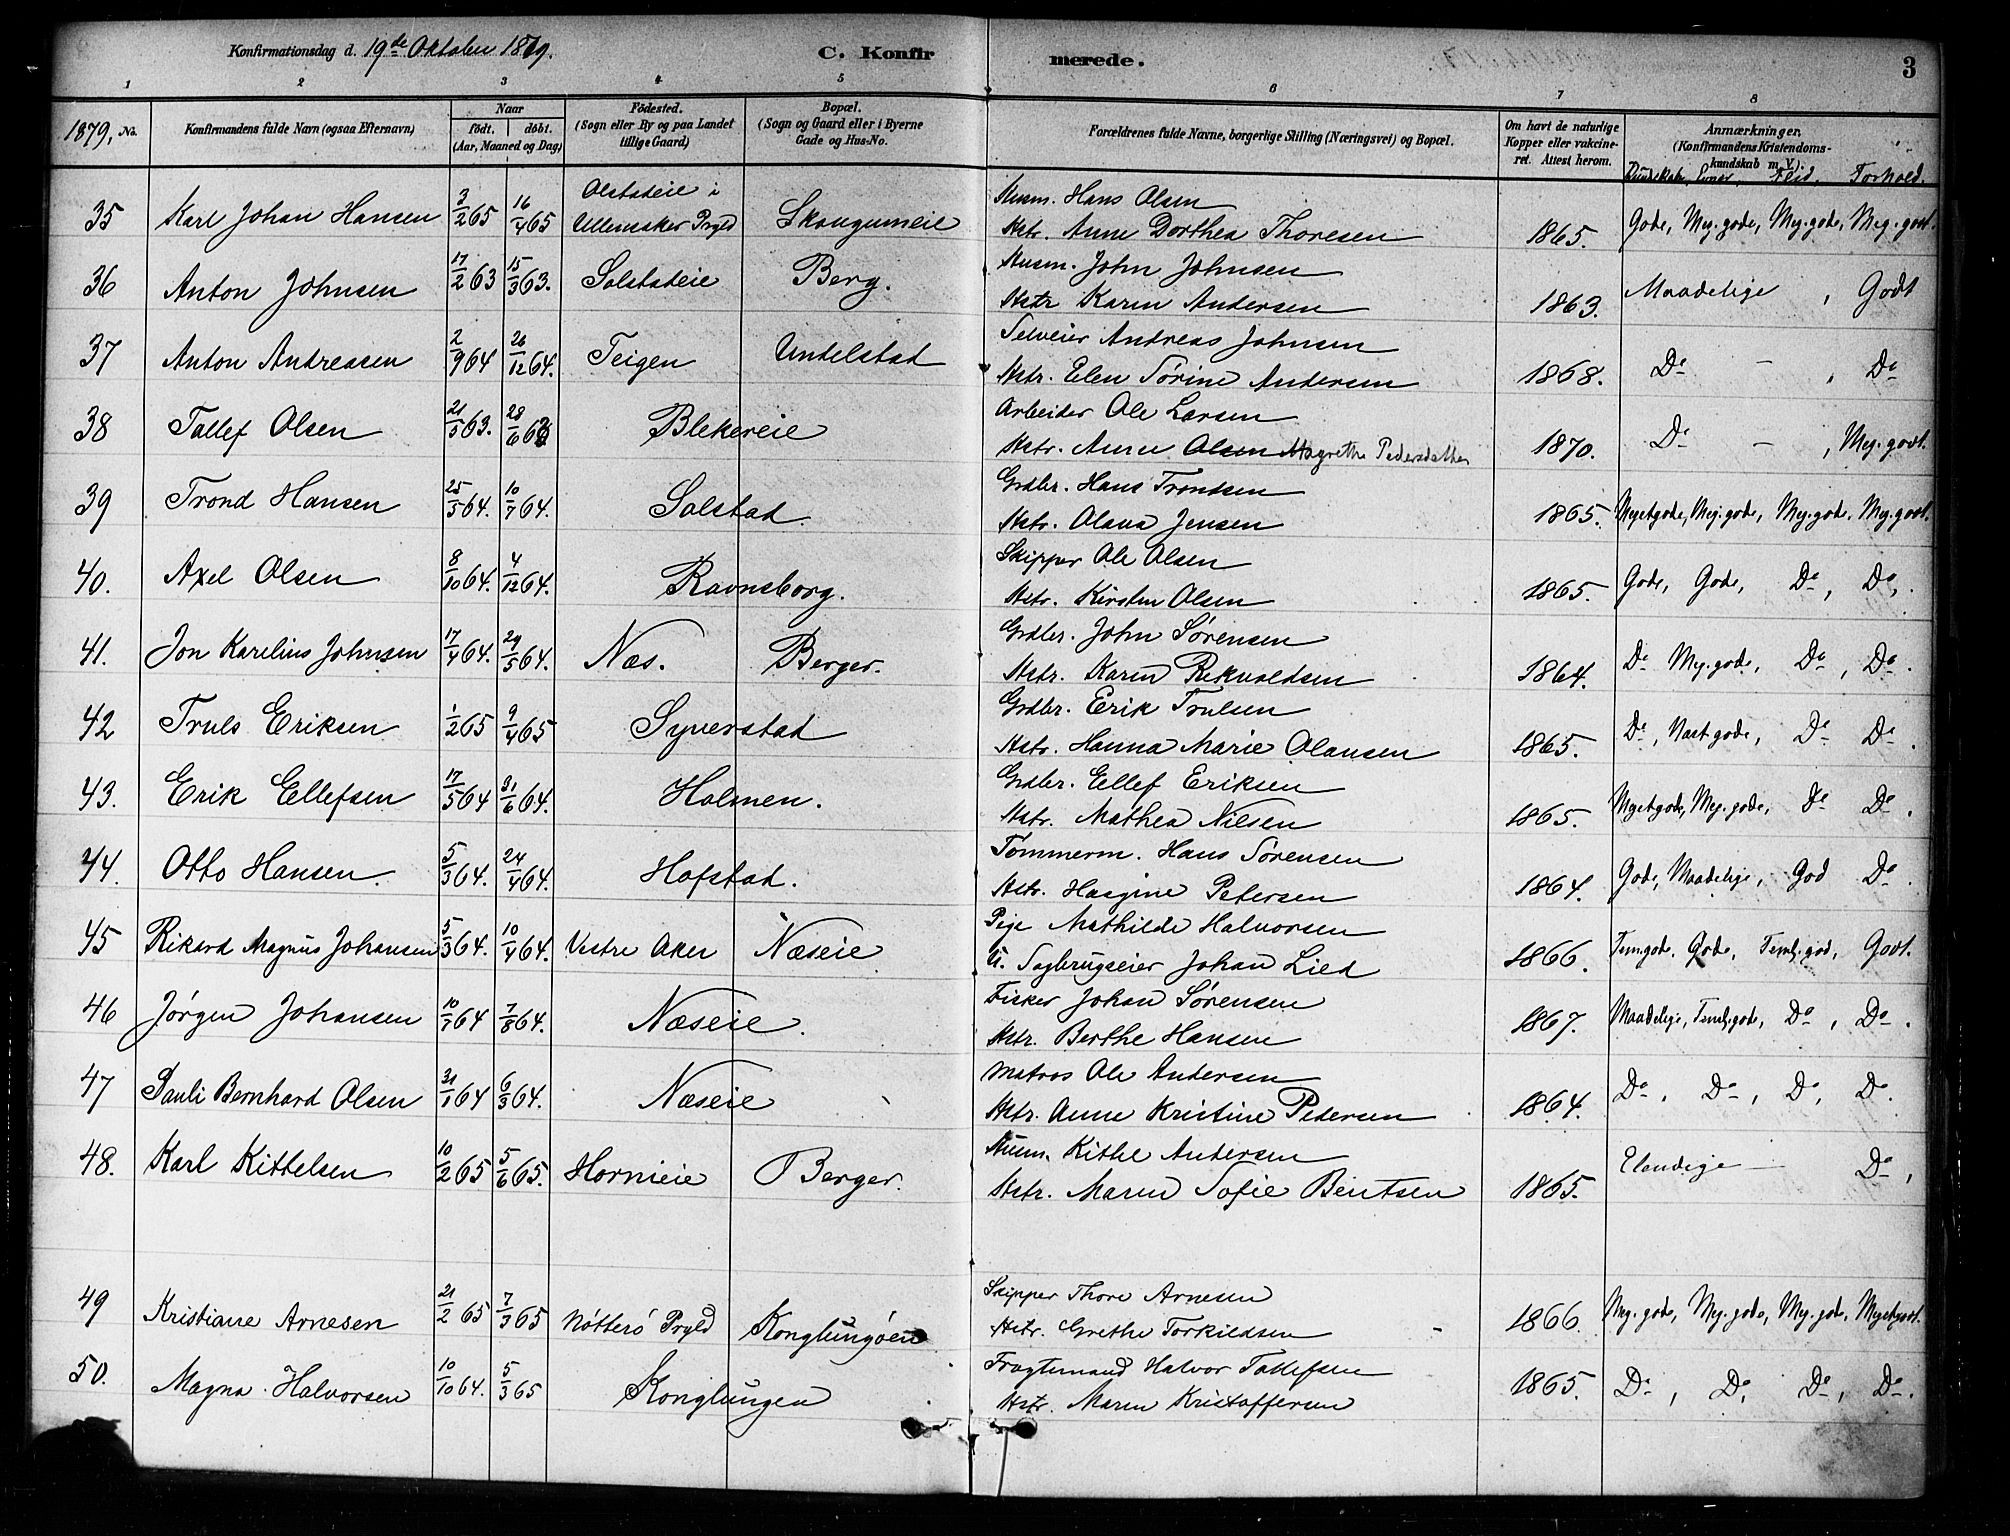 Konfirmationsdag d. 19de Oktober 1879. C. Konfirmerede. 3
1 2 3 4 5 6 7 8
1879, No. Konfirmandens fulde Navn (ogsaa Efternavn) Naar født. døbt. (Aar, Maaned og Dag) Fødested. (Sogn eller By og paa Landet tillige Gaard) Bopæl. (Sogn og Gaard eller i Byerne Gade og Hus-No. Forældrenes fulde Navne, borgerlige Stilling (Næringsvei) og Bopæl. Om havt de naturlige Kopper eller vaccineret. Attest herom. Anmærkninger. (Konfirmandens Kristendomskundskab m. V.)
Kundskaber, Evner, Flid, Forhold.
35 Karl Johan Hansen 3/2 65 16/4 65 Olstadeie i Ullensaker Prgld Skaugumeie Husm. Hans Olsen
Hstr. Anne Dorthea Thoresen 1865. Gode, Meg. gode, Meg. gode, Meg. godt.
36 Anton Johnsen 17/2 63 15/3 63. Solstadeie Berg. Husm. John Johnsen
Hstr Karen Andersen 1863. Maadelige, Godt
37 Anton Andreasen 2/9 64 26/12 64. Teigen Undelstad Selveier Andreas Johnsen
Hstr. Elen Sørine Andersen 1868. Do - , Do
38 Tollef Olsen 21/5 63. 28/6 63 Blekereie Arbeider Ole Larsen
Hstr. Anne Olsen Magrethe Pedersdatter 1870. Do - , Meg. godt.
39 Trond Hansen 25/5 64. 10/7 64. Solstad. Grdbr. Hans Trondsen
Hstr. Olava Jensen 1865. Megetgode, Meg. gode, Meg. gode. Meg. godt.
40. Axel Olsen 8/10 64. 4/12 64. Ravnsborg. Skipper Ole Olsen
Hstr. Kirsten Olsen 1865. Gode, Gode, Do, Do,
41. Jon Karelius Johnsen 17/4 64. 29/5 64. Næs. Berger. Grdbr. John Sørensen
Hstr. Karen Rekvoldsen 1864. Do Meg. gode, Do, Do.
42 Truls Eriksen 1/2 65 9/4 65 Syverstad Grdbr. Erik Trulsen
Hstr. Hanna Marie Olausen 1865. Do, Næst gode, Do Do.
43. Erik Ellefsen 17/5 64 31/6 64. Holmen. Grdbr. Ellef Eriksen
Hstr. Mathea Nilsen 1865. Megetgode, Meg. gode, Do Do.
44. Otto Hansen. 5/3 64. 24/4 64. Hofstad. Tømmerm. Hans Sørensen
Hstr. Petersen 1864. Gode, Maadelige, God Do.
45 Rikard Magnus Johansen 5/3 64. 10/4 64. Vestre Aker Næseie Pige Mathilde Halvorsen
U. Sagbrugseier Johan Lied 1866. Temgode, Gode, Teml. god, Godt.
46 Jørgen Johansen 10/7 64 7/8 64. Næseie. Fisker Johan Sørensen
Hstr. Berthe Hansen 1867. Maadelige, Teml. gode, Do, Do.
47 Pauli Bernhard Olsen 31/1 64 6/3 64. Næseie Matros Ole Andersen
Hstr. Anne Kristine Petersen 1864. Do, Do, Do, Do.
48. Karl Kittelsen 10/2 65 5/6 65. Hornieie Berger. Husm. Kittel Andersen
Hstr. Maren Sofie Bentsen 1865. Elendige - Do,
49 Kristiane Arnesen 21/2 65 7/3 65 Nøtterø Prgld Konglungøen Skipper Thore Arnesen
Hstr. Grethe Torkildsen 1866. Meg. gode, Meg. gode, Meg. gode, Megetgodt.
50. Magna Halvorsen 10/10 64. 5/3 65 Konglungen Fragtemand Halvor Tollefsen
Hstr. Maren Kristoffersen 1865. Do, Do, Do, Do.